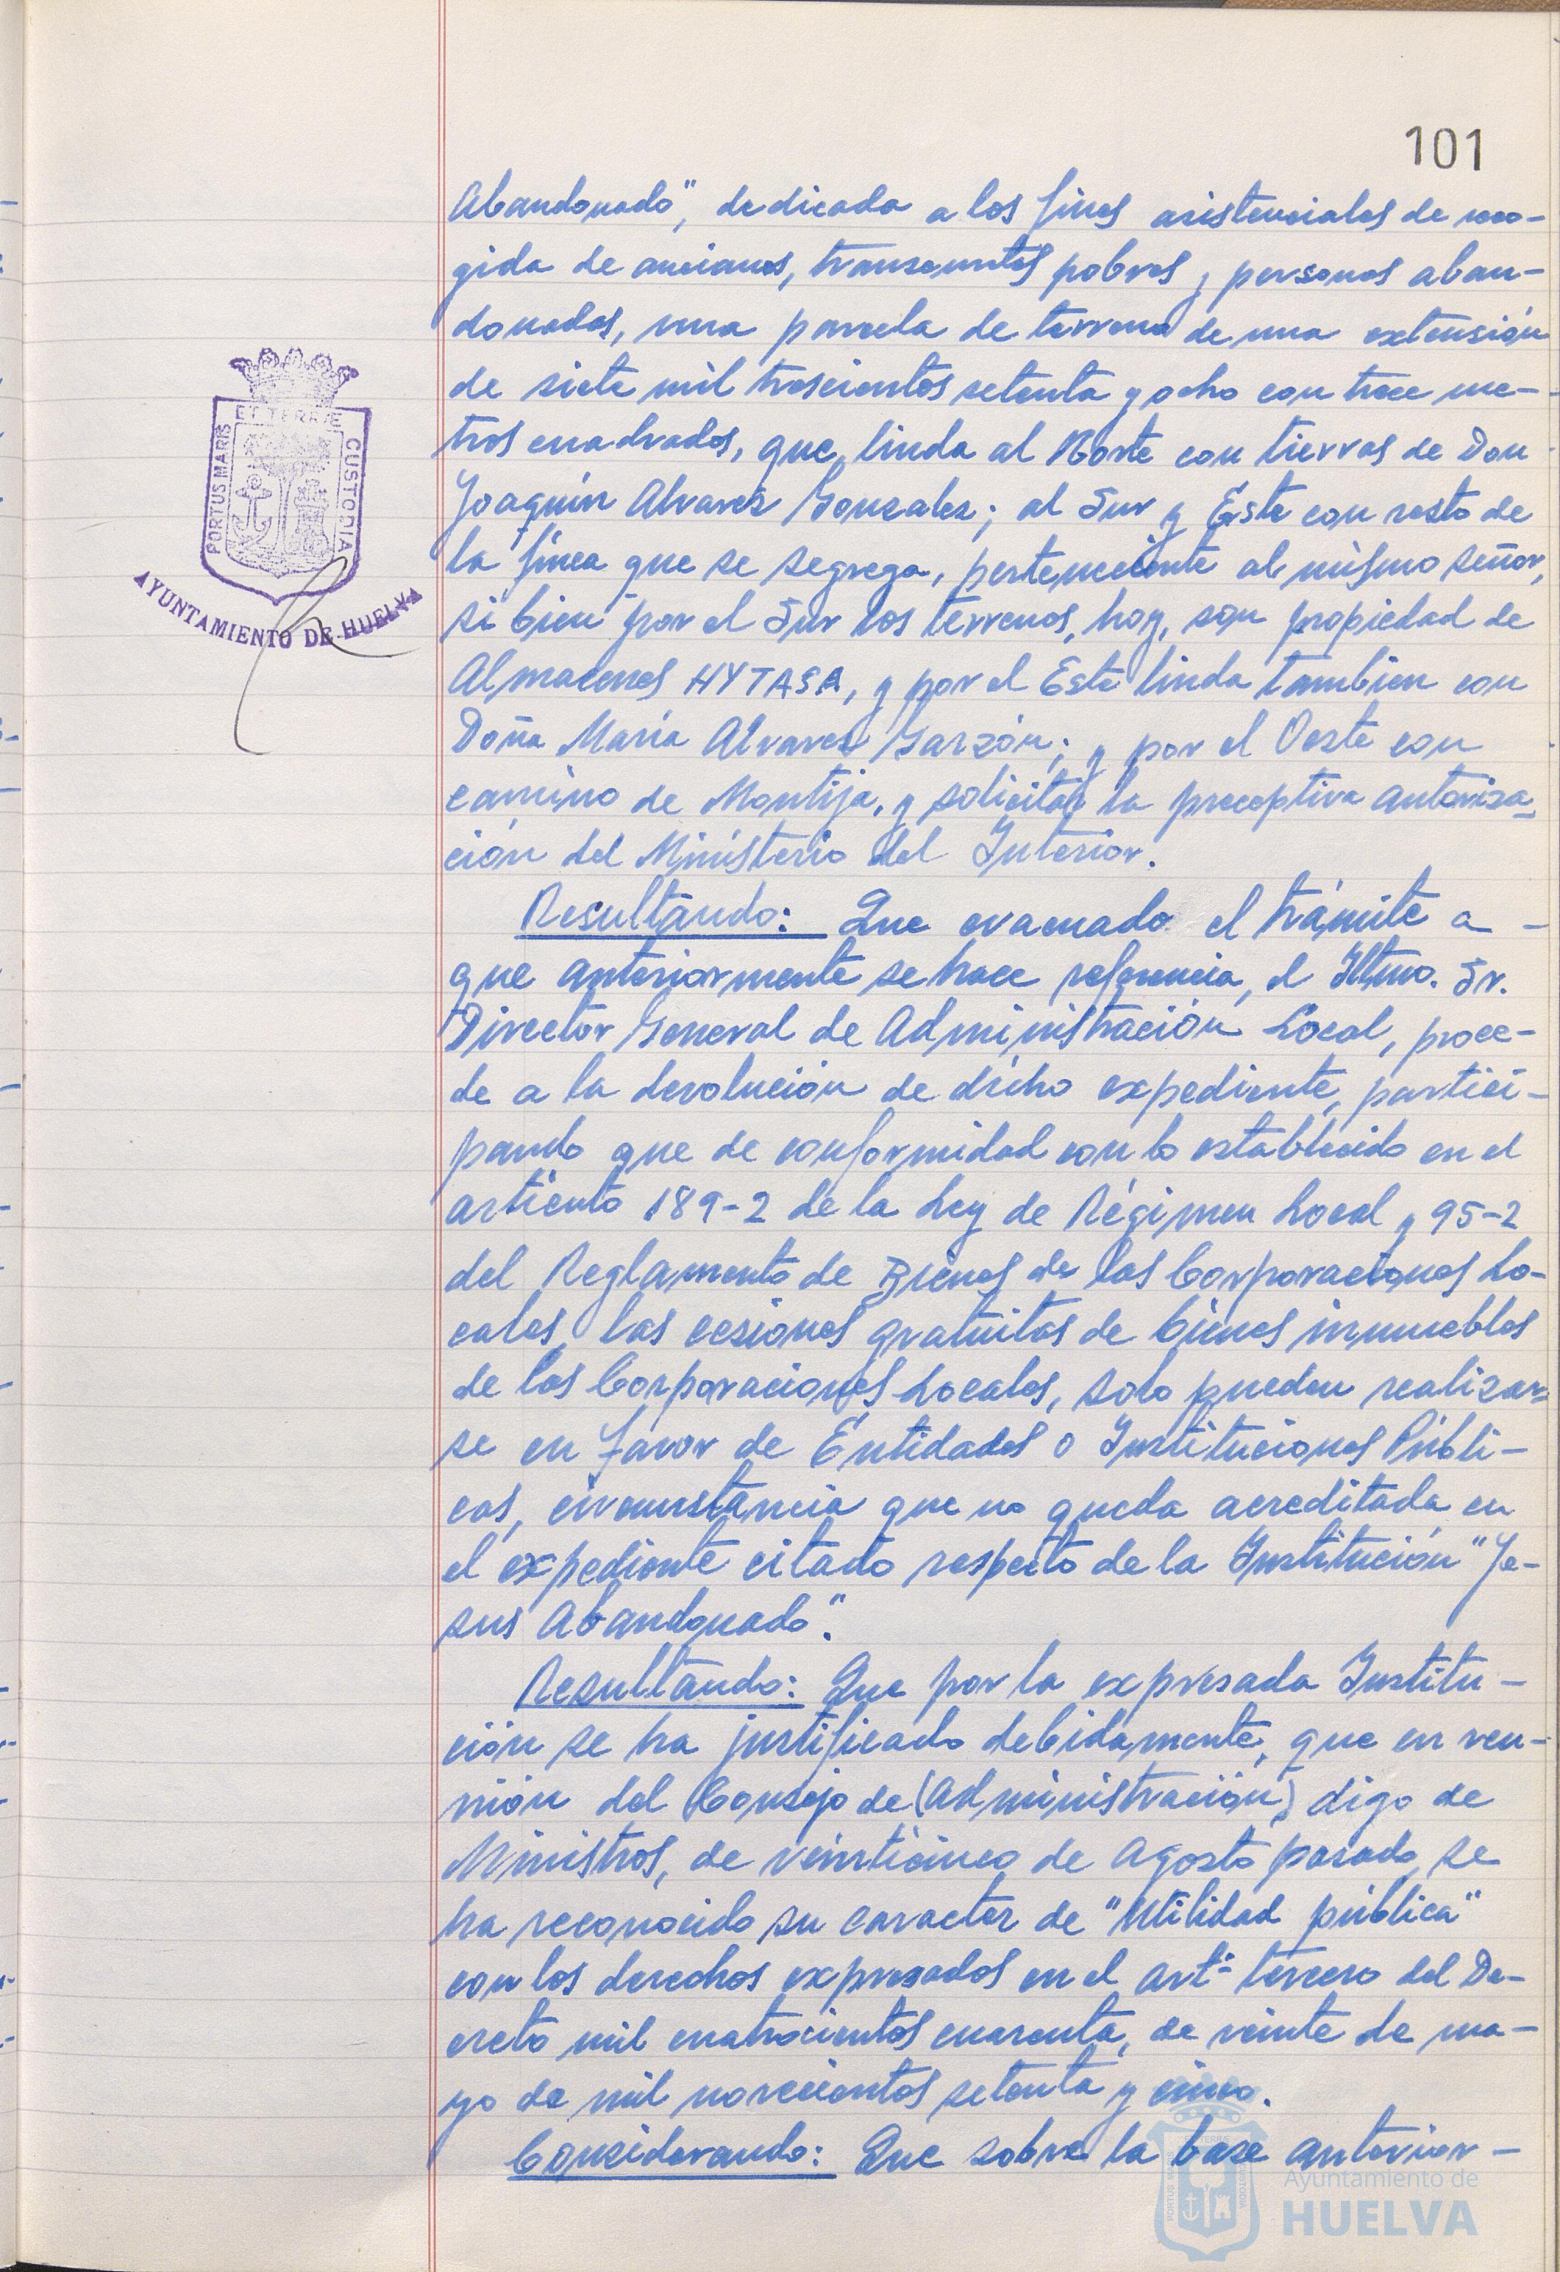 101
Abandonado", dedicada a los fines asistenciales de reco-
gida de ancianos, transeuntes pobres y personas aban-
donadas, una parcela de terreno de una extensión
de siete mil trescientos setenta y ocho con trece me-
tros cuadrados, que linda al Norte con tierras de Don
Joaquín Alvarez Gonzalez; al Sur y Este con resto de
la finca que se segrega, perteneciente al mismo señor,
si bien por el Sur los terrenos, hoy, son propiedad de
Almacenes HYTASA, y por el Este linda tambien con
Doña María Alvarez Garzón; y por el Oeste con
camino de Montija, y solicitar la preceptiva autoriza-
ción del Ministerio del Interior.
Resultando: Que evacuado el trámite a -
que anteriormente se hace referencia, el Iltmo. Sr.
Director General de Administración Local, proce-
de a la devolución de dicho expediente, partici-
pando que de conformidad con lo establecido en el
artículo 189-2 de la Ley de Régimen Local y 95-2
del Reglamento de Bienes de las Corporaciones Lo-
cales, las cesiones gratuitas de bienes inmuebles
de las Corporaciones Locales, solo pueden realizar-
se en favor de Entidades o Instituciones Públi-
cas, circunstancia que no queda acreditada en
el expediente citado respecto de la Institución "Je-
sus Abandonado".
Resultando: Que por la expresada Institu-
ción se ha justificado debidamente, que en reu-
nión del Consejo de (Administración) digo de
Ministros, de veinticinco de Agosto pasado, se
ha reconocido su caracter de "Utilidad pública"
con los derechos expresados en el artº tercero del De-
creto mil cuatrocientos cuarenta, de veinte de ma-
yo de mil novecientos setenta y cinco.
Considerando: Que sobre la base anterior-
PORTUS MARIS
ET TERRAE
CUSTODIA
AYUNTAMIENTO DE HUELVA
Ayuntamiento de
HUELVA